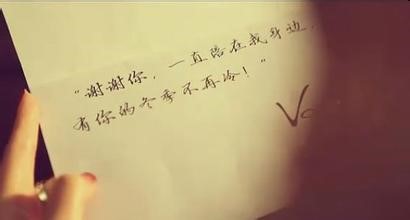 “谢谢你，一直陪在我身边，
有你的冬季不再冷！”